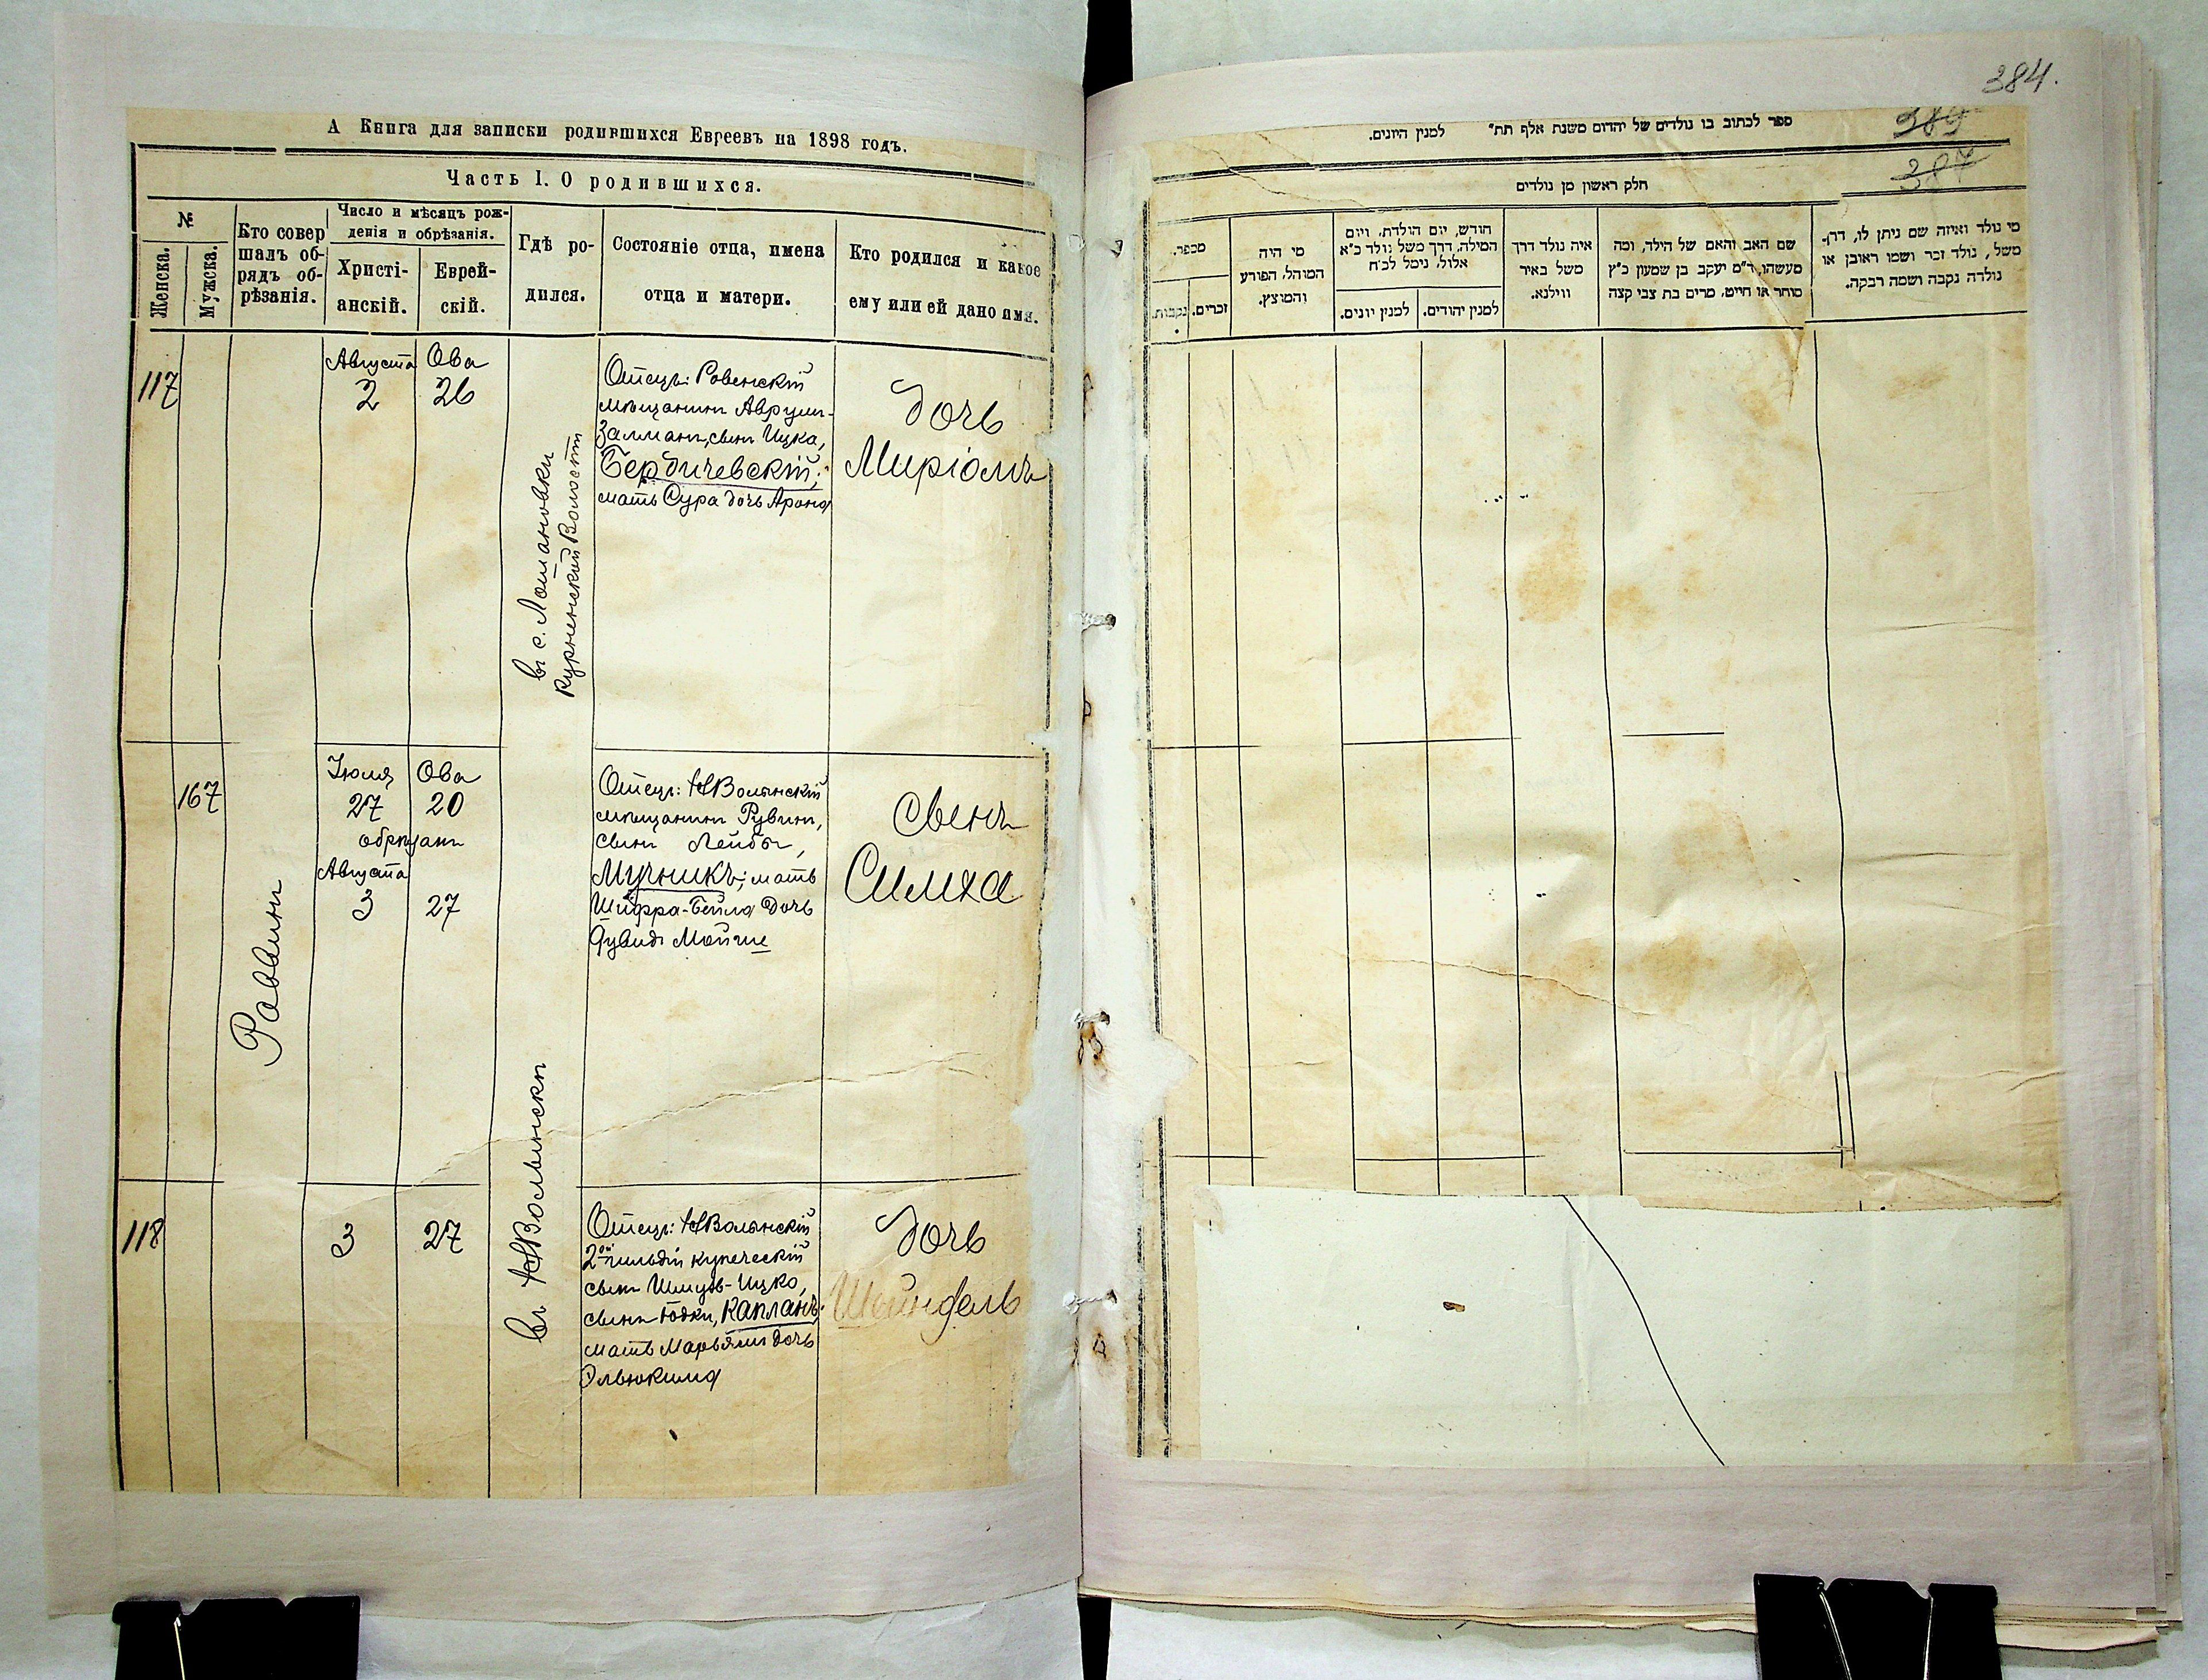 384.
А Книга для записки родившихся Евреевъ на 1898 годъ.
Часть I. О родившихся.
№
Женска.
Мужска.
Кто совер
шалъ об-
рядъ об-
рѣзанія.
Число и мѣсяцъ рож-
денія и обрѣзанія.
Христі-
анскій.
Еврей-
скій.
Гдѣ ро-
дился.
Состояніе отца, имена
отца и матери.
Кто родился и какое
ему или ей дано имя.
117
Августа
2
Ова
26
въ с.
Волости
Отецъ: Ровенскій
мѣщанинъ Аврумъ-
Залманъ, сынъ Ицка,
Бердичевскій;
мать Сура дочь Арона
дочь
Миріомъ
167
Раввинъ
Іюля
27
Ова
20
обрѣзанъ
Августа
3
27
Отецъ: НВолынскій
мѣщанинъ Рувинъ,
сынъ Лейбы,
Мучникъ; мать
Шифра-Бейла дочь
Мойше
сынъ
Симха
118
3
27
въ НВолынскѣ
Отецъ: НВолынскій
2ой гильдіи купеческій
сынъ Шмуль-Ицко,
сынъ Іодки, Капланъ;
мать Марьямъ дочь
Эльюкима
дочь
Шейндель
ספר לכתוב בו נולדים של יהודים משנת אלף תת״ למנין היונים.
389
387
חלק ראשון מן נולדים
מספר.
נקבות.
זכרים.
מי היה
המוהל, הפורע
והמוצץ.
חודש, יום הולדת, ויום
המילה, דרך משל נולד כ״א
אלול, נימל לכ״ח
למנין יונים.
למנין יהודים.
איה נולד דרך
משל באיר
ווילנא.
שם האב והאם של הילד, ומה
מעשהו, ד״מ יעקב בן שמעון כ״ץ
סוחר או חייט, מרים בת צבי קצה
מי נולד ואיזה שם ניתן לו, דרך
משל, נולד זכר ושמו ראובן או
נולדה נקבה ושמה רבקה.